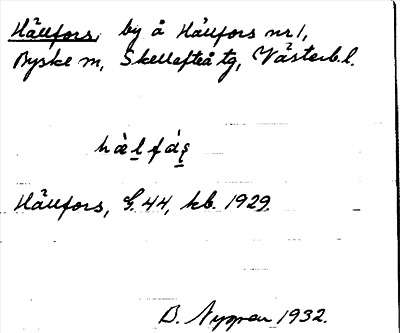 Hällfors, by å Hällfors nr 1,
Byske sn, Skellefteå tg, Västerb. l.
Hällfors, G. 44, kb. 1929.
B. 1932.